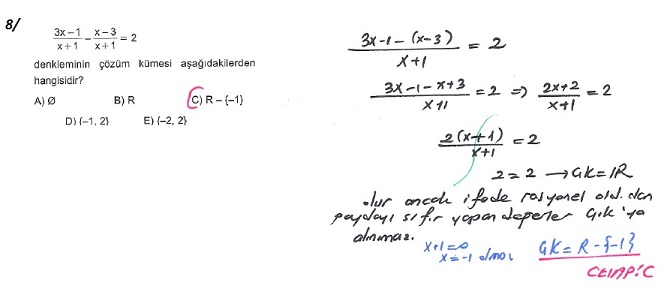 8/
3x-1/x+1 - x-3/x+1 = 2
denkleminin çözüm kümesi aşağıdakilerden
hangisidir?
A) Ø B) R C) R - {-1}
D) {-1, 2} E) {-2, 2}
3x-1-(x-3)/x+1 = 2
3x-1-x+3/x+1 = 2 => 2x+2/x+1 = 2
2(x+1)/x+1 = 2
2=2 → ÇK=IR
olur ancak ifade rasyonel old.dan
paydayı sıfır yapan değerler Ç.k'ya
alınmaz.
x+1=0
x=-1 olmaz
ÇK= R-{-1}
CEVAP:C